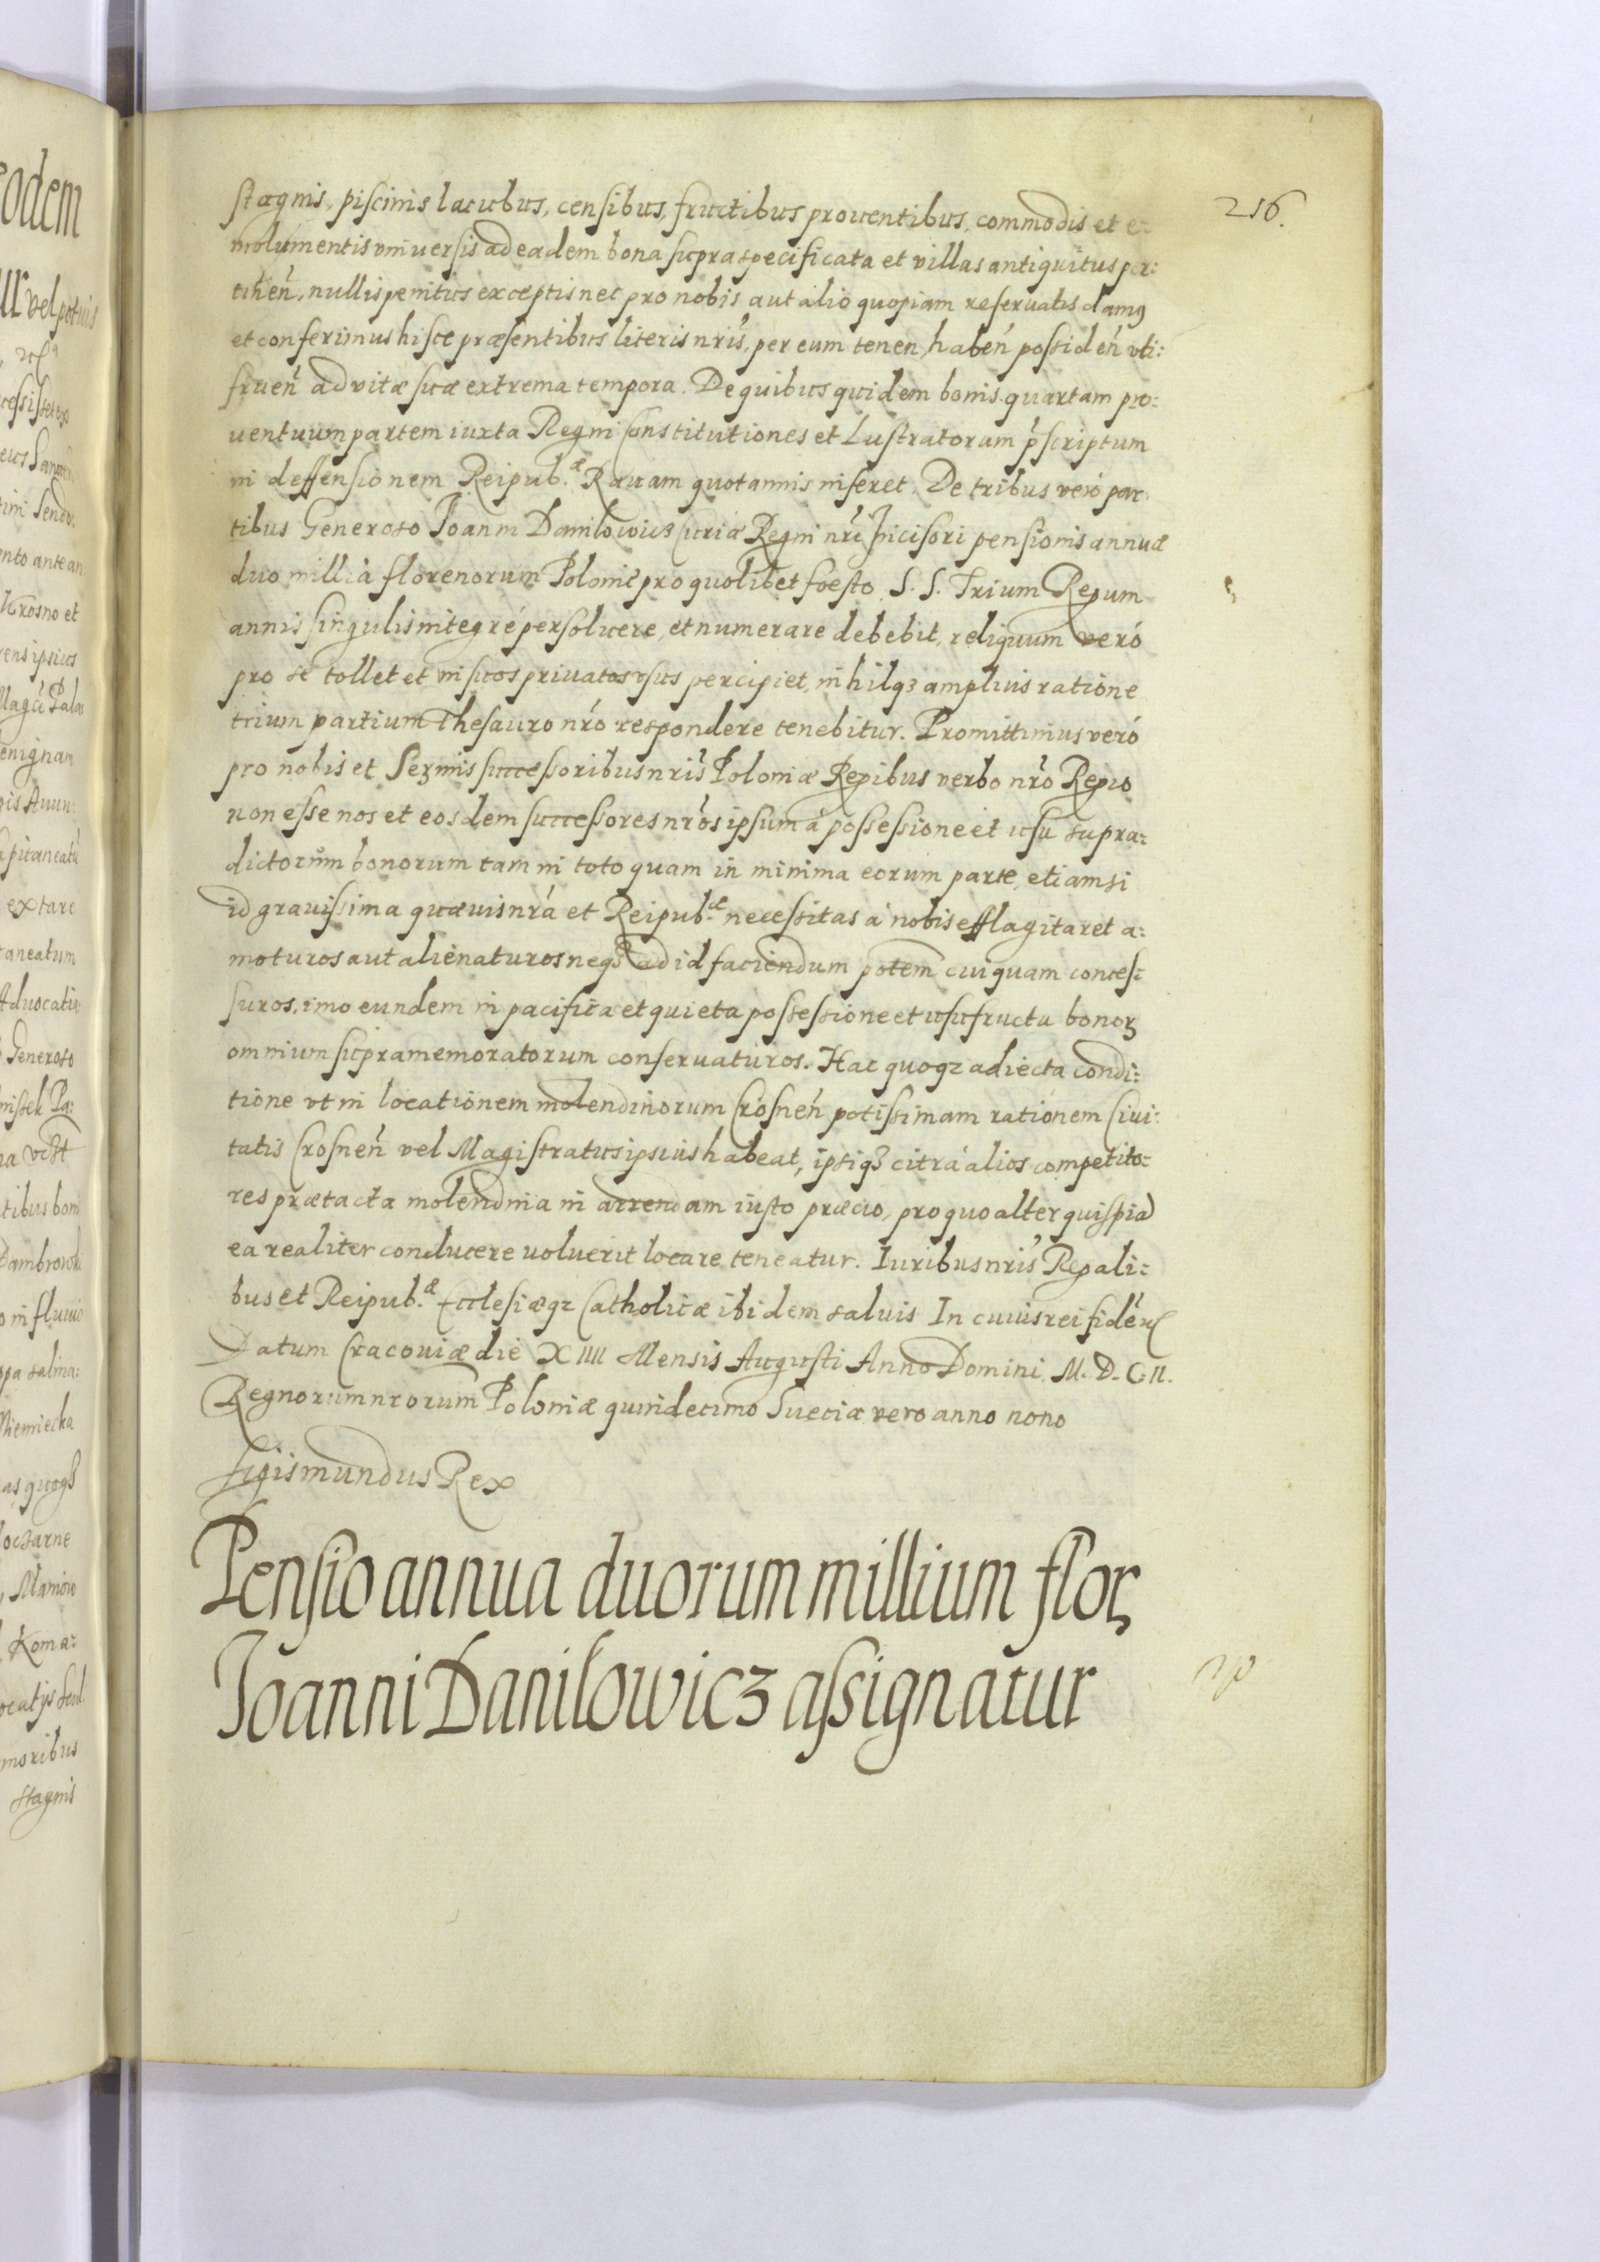 216.
stagnis, piscinis lacubus, censibus, fructibus prouentibus, commodis et e-
molumentis vniuersis ad eadem bona supra specificata et villas antiquitus per:
tineñ, nullis penitus exceptis nec pro nobis aut alio quopiam reseruatis damꝰ
et conferimus hisce præsentibus literis nris, per eum tenen, habeñ possideñ vti:
frueñ ad vitæ suæ extrema tempora. De quibus quidem bonis quartam pro:
uentuum partem iuxta Regni Constitutiones et Lustratorum pscriptum
in deffensionem Reipub.æ Rauam quotannis inferet. De tribus veró par:
tibus Generoso Joanni Danilowicz Curiæ Regni nri Incisori pensionis annuæ
duo millia florenorum Polonic pro quolibet foesto S. S. Trium Regum
annis singulis integré persoluere, et numerare debebit, reliquum veró
pro se tollet et in suos priuatos vsus percipiet, nihilqꝫ amplius ratione
trium partium Thesauro nro respondere tenebitur. Promittimus veró
pro nobis et Sermis successoribus nris Poloniæ Regibus verbo nro Regio
non esse nos et eosdem successores nros ipsum á possessione et vsu supra-
dictorum bonorum tam in toto quam in minima eorum parte, etiamsi
id grauissima quæuis nra et Reipub.æ necessitas á nobis efflagitaret a:
moturos aut alienaturos neqꝫ ad id faciendum potem cuiquam conces:
suros, imo eundem in pacifica et quieta possessione et vsufructu bonoꝝ
omnium supramemoratorum conseruaturos. Hac quoqꝫ adiecta condi:
tione vt in locationem molendinorum Crosneñ potissimam rationem Ciui:
tatis Crosneñ vel Magistratus ipsius habeat, ipsiqꝫ citra alios competito:
res prætacta molendina in arrendam iusto præcio, pro quo alter quispiã
ea realiter conducere uoluerit locare teneatur. Iuribus nris Regali:
bus et Reipub.æ Ecclesiæqꝫ Catholicæ ibidem saluis In cuius rei fidem
Datum Cracouiæ die XIIII Mensis Augusti Anno Domini. M. D. C. II.
Regnorum nrorum Poloniæ quindecimo Sueciæ vero anno nono
Sigismundus Rex
Pensio annua duorum millium floꝝ
Joanni Danilowicz assignatur